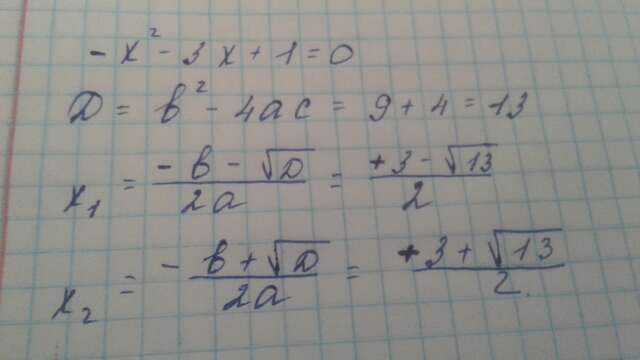 -x² - 3x + 1 = 0
D = b² - 4ac = 9 + 4 = 13
x₁ = (-b - √D)/(2a) = (+3 - √13)/2
x₂ = (-b + √D)/(2a) = (+3 + √13)/2.